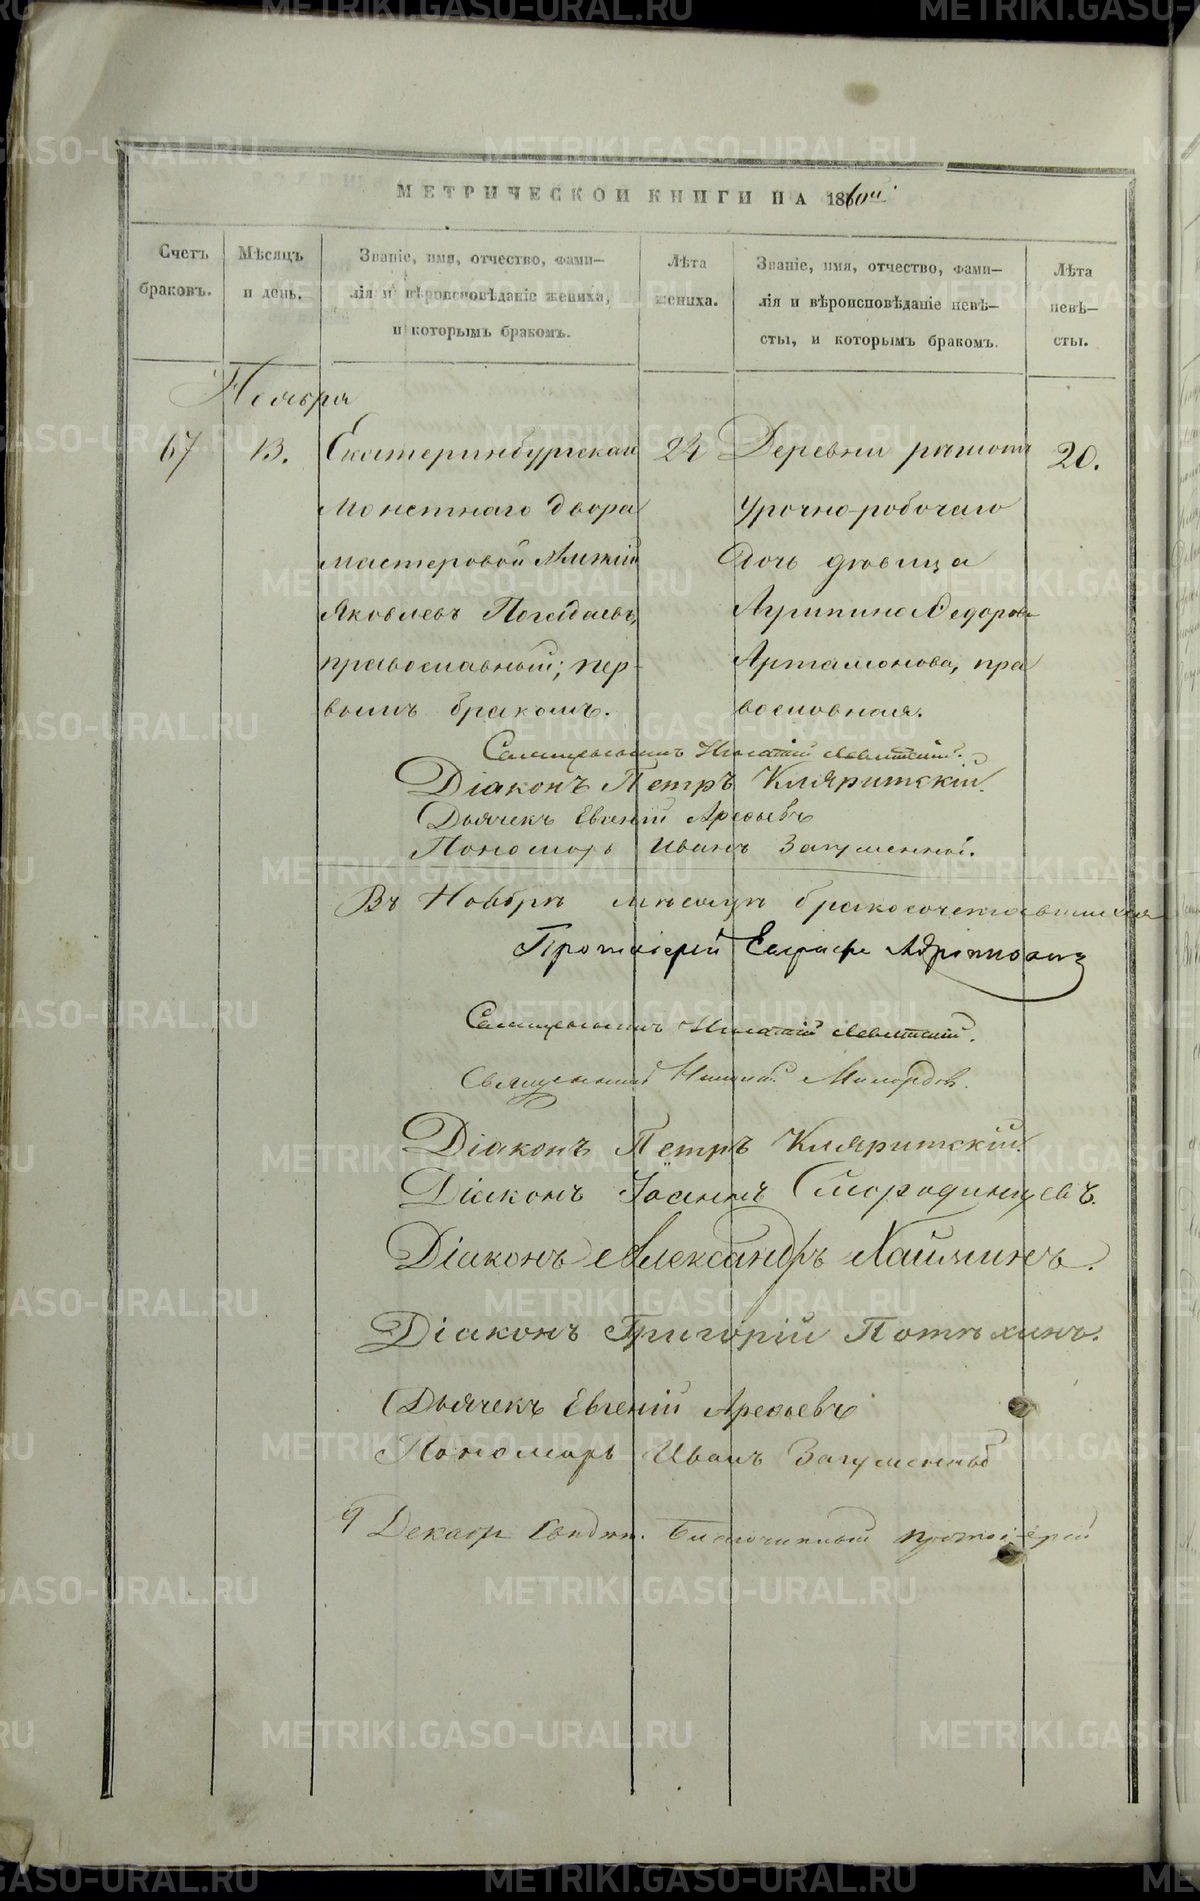 МЕТРИЧЕСКОЙ КНИГИ НА 1860й
Счетъ браковъ.
Мѣсяцъ и день.
Званіе, имя, отчество, фами-
лія и вѣроисповѣданіе жениха,
и которымъ бракомъ.
Лѣта жениха.
Званіе, имя, отчество, фами-
лія и вѣроисповѣданіе невѣ-
сты, и которымъ бракомъ.
Лѣта невѣ-
сты.
Ноября
67
13.
Екатеринбургскаго
Монетнаго двора
мастеровой
Яковлевъ Погадаевъ,
православный; пер-
вымъ бракомъ.
24
Деревни
Урочно-робочаго
дочь дѣвица
Агрипина Ѳедорова
Артамонова, пра
вославная.
20.
Священникъ Игнатій Левитскій.
Діаконъ Петръ Кляритскій.
Дьячекъ Евгеній Арефьевъ
Пономарь Иванъ Загуменной.
Въ Ноябрѣ мѣсяцѣ бракосочетавшихся
Протоіерей Евграфъ
Священникъ Игнатій Левитскій.
Священникъ
Діаконъ Петръ Кляритскій.
Діаконъ Іоаннъ Смородинцевъ.
Діаконъ Александръ Хаймминъ.
Діаконъ Григорій Потѣхинъ.
Дьячекъ Евгеній Арефьевъ
Пономарь Иванъ Загуменной
9 Декабр Благочинный протоіерей
METRIKI.GASO-URAL.RU